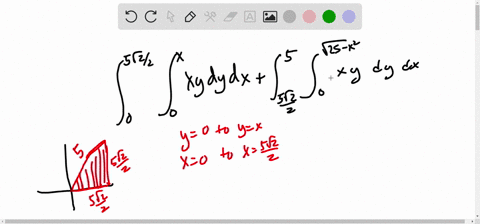 ∫₀^{5√2/2} ∫₀^x xy dy dx + ∫_{5√2/2}^5 ∫₀^{√25-x²} xy dy dx
y=0 to y=x
x=0 to x=5√2/2
5
5√2/2
5√2/2